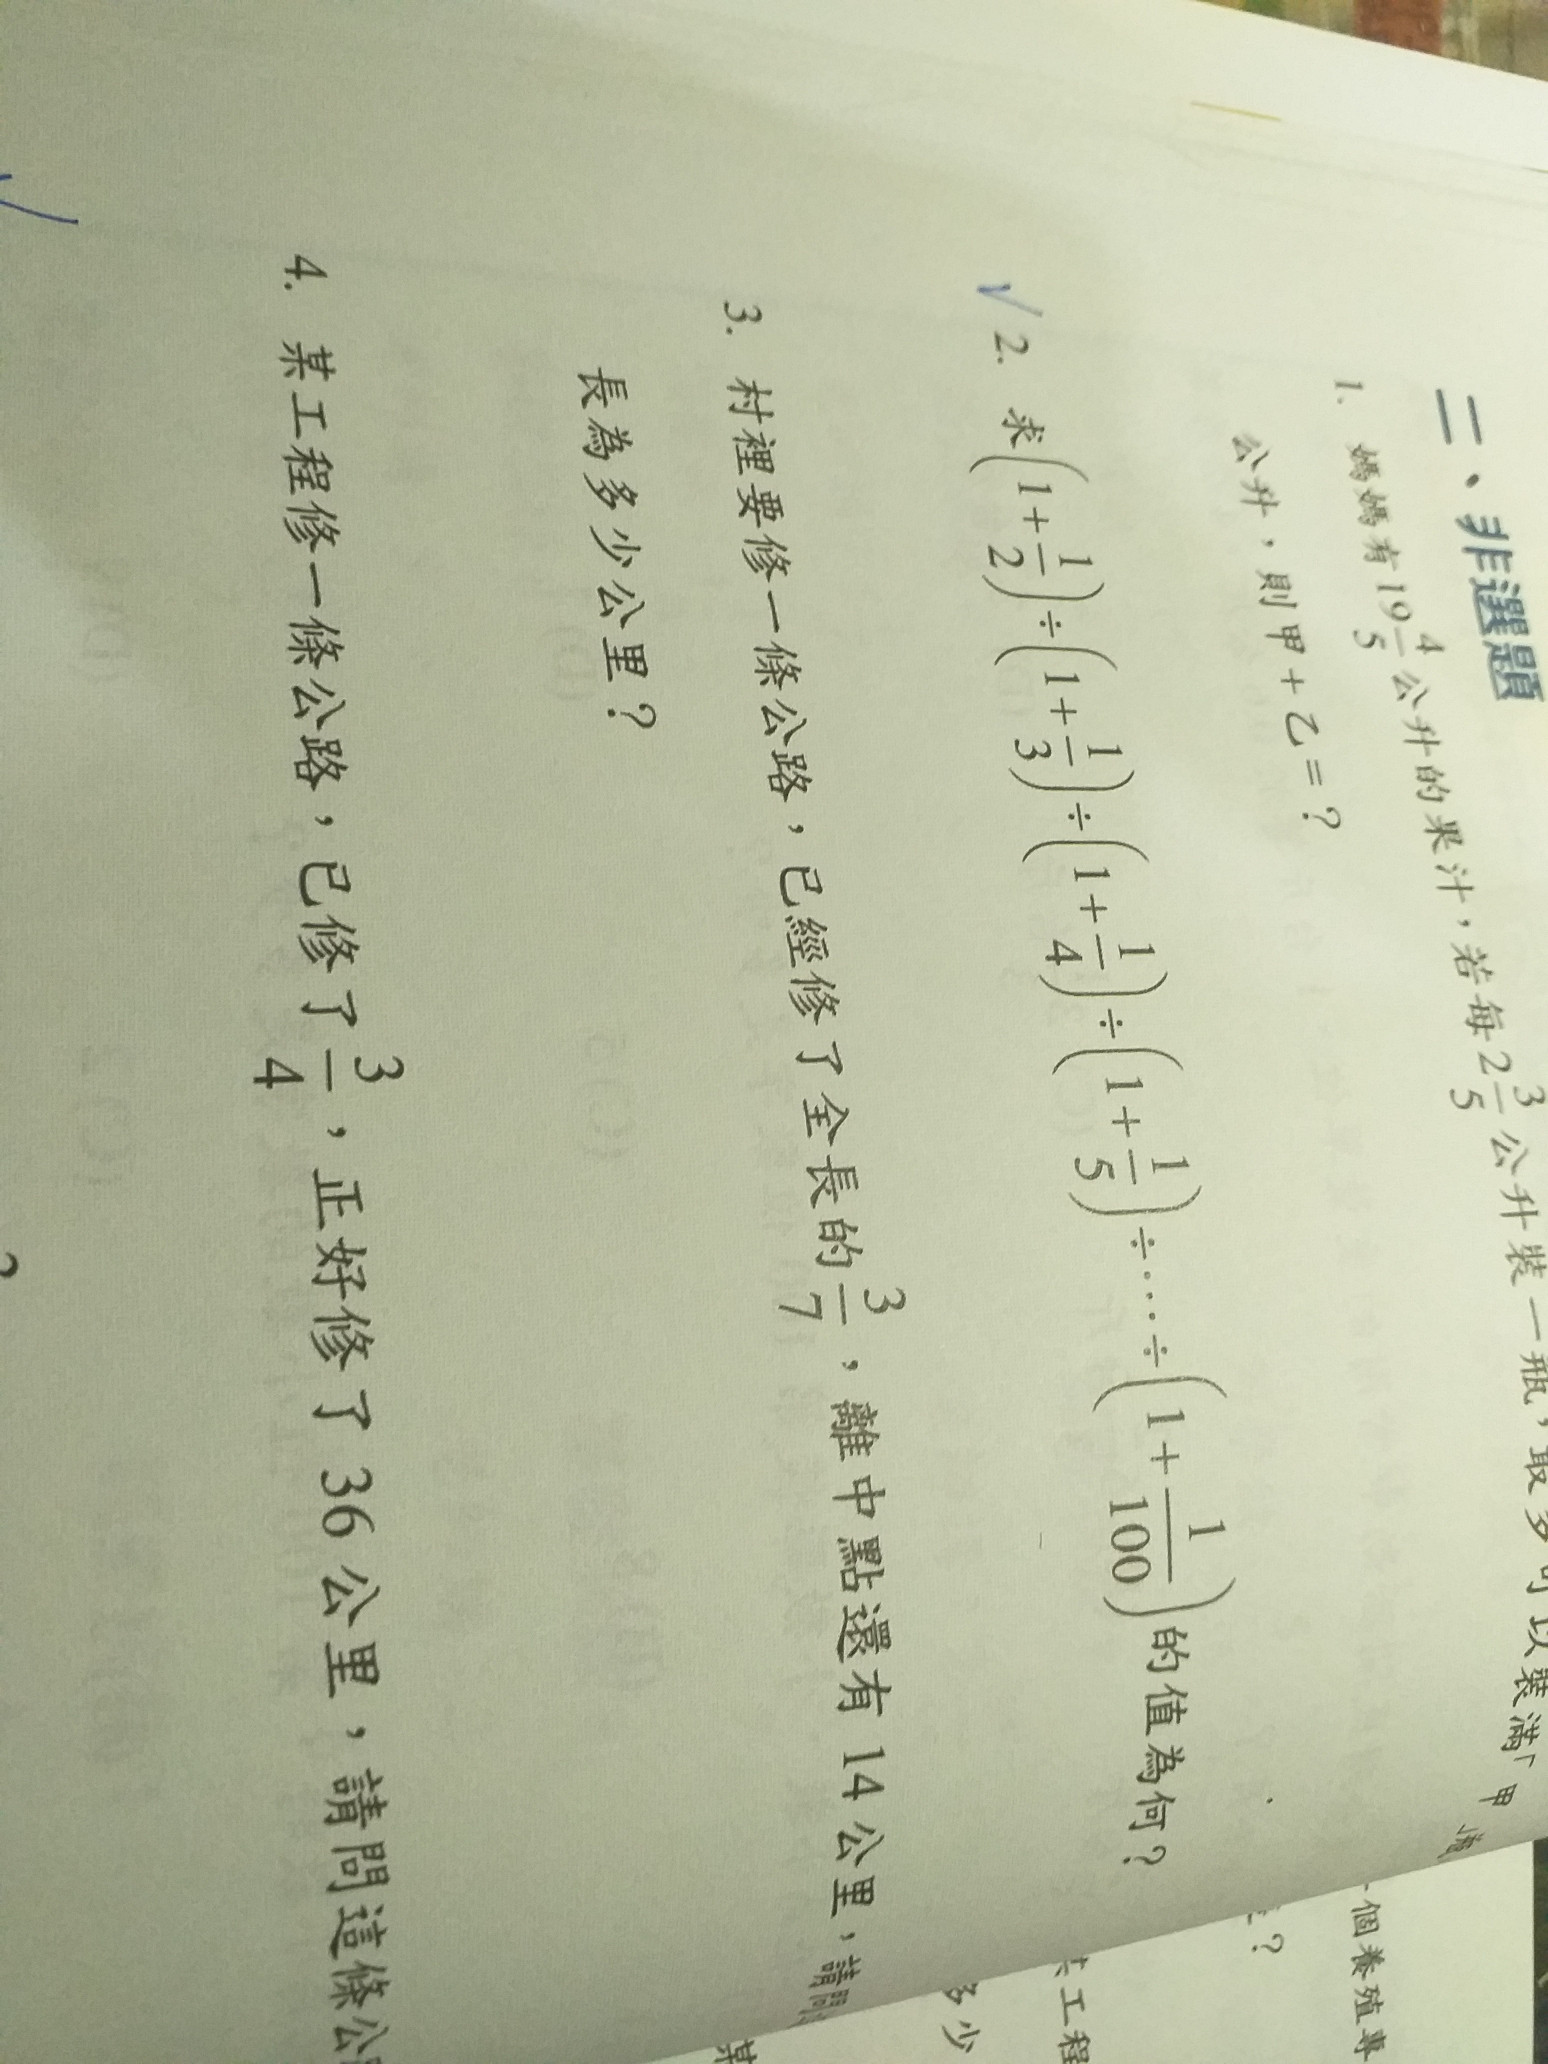 二、非選題
1. 媽媽有19 4/5 公升的果汁，若每2 3/5 公升裝一瓶，最多可以裝滿「甲」瓶
公升，則甲+乙=？
2. 求(1+1/2)÷(1+1/3)÷(1+1/4)÷(1+1/5)÷…÷(1+1/100)的值為何？
3. 村裡要修一條公路，已經修了全長的3/7，離中點還有14公里，請問
長為多少公里？
4. 某工程修一條公路，已修了3/4，正好修了36公里，請問這條公
一個養殖專
？
某工程
多少
某